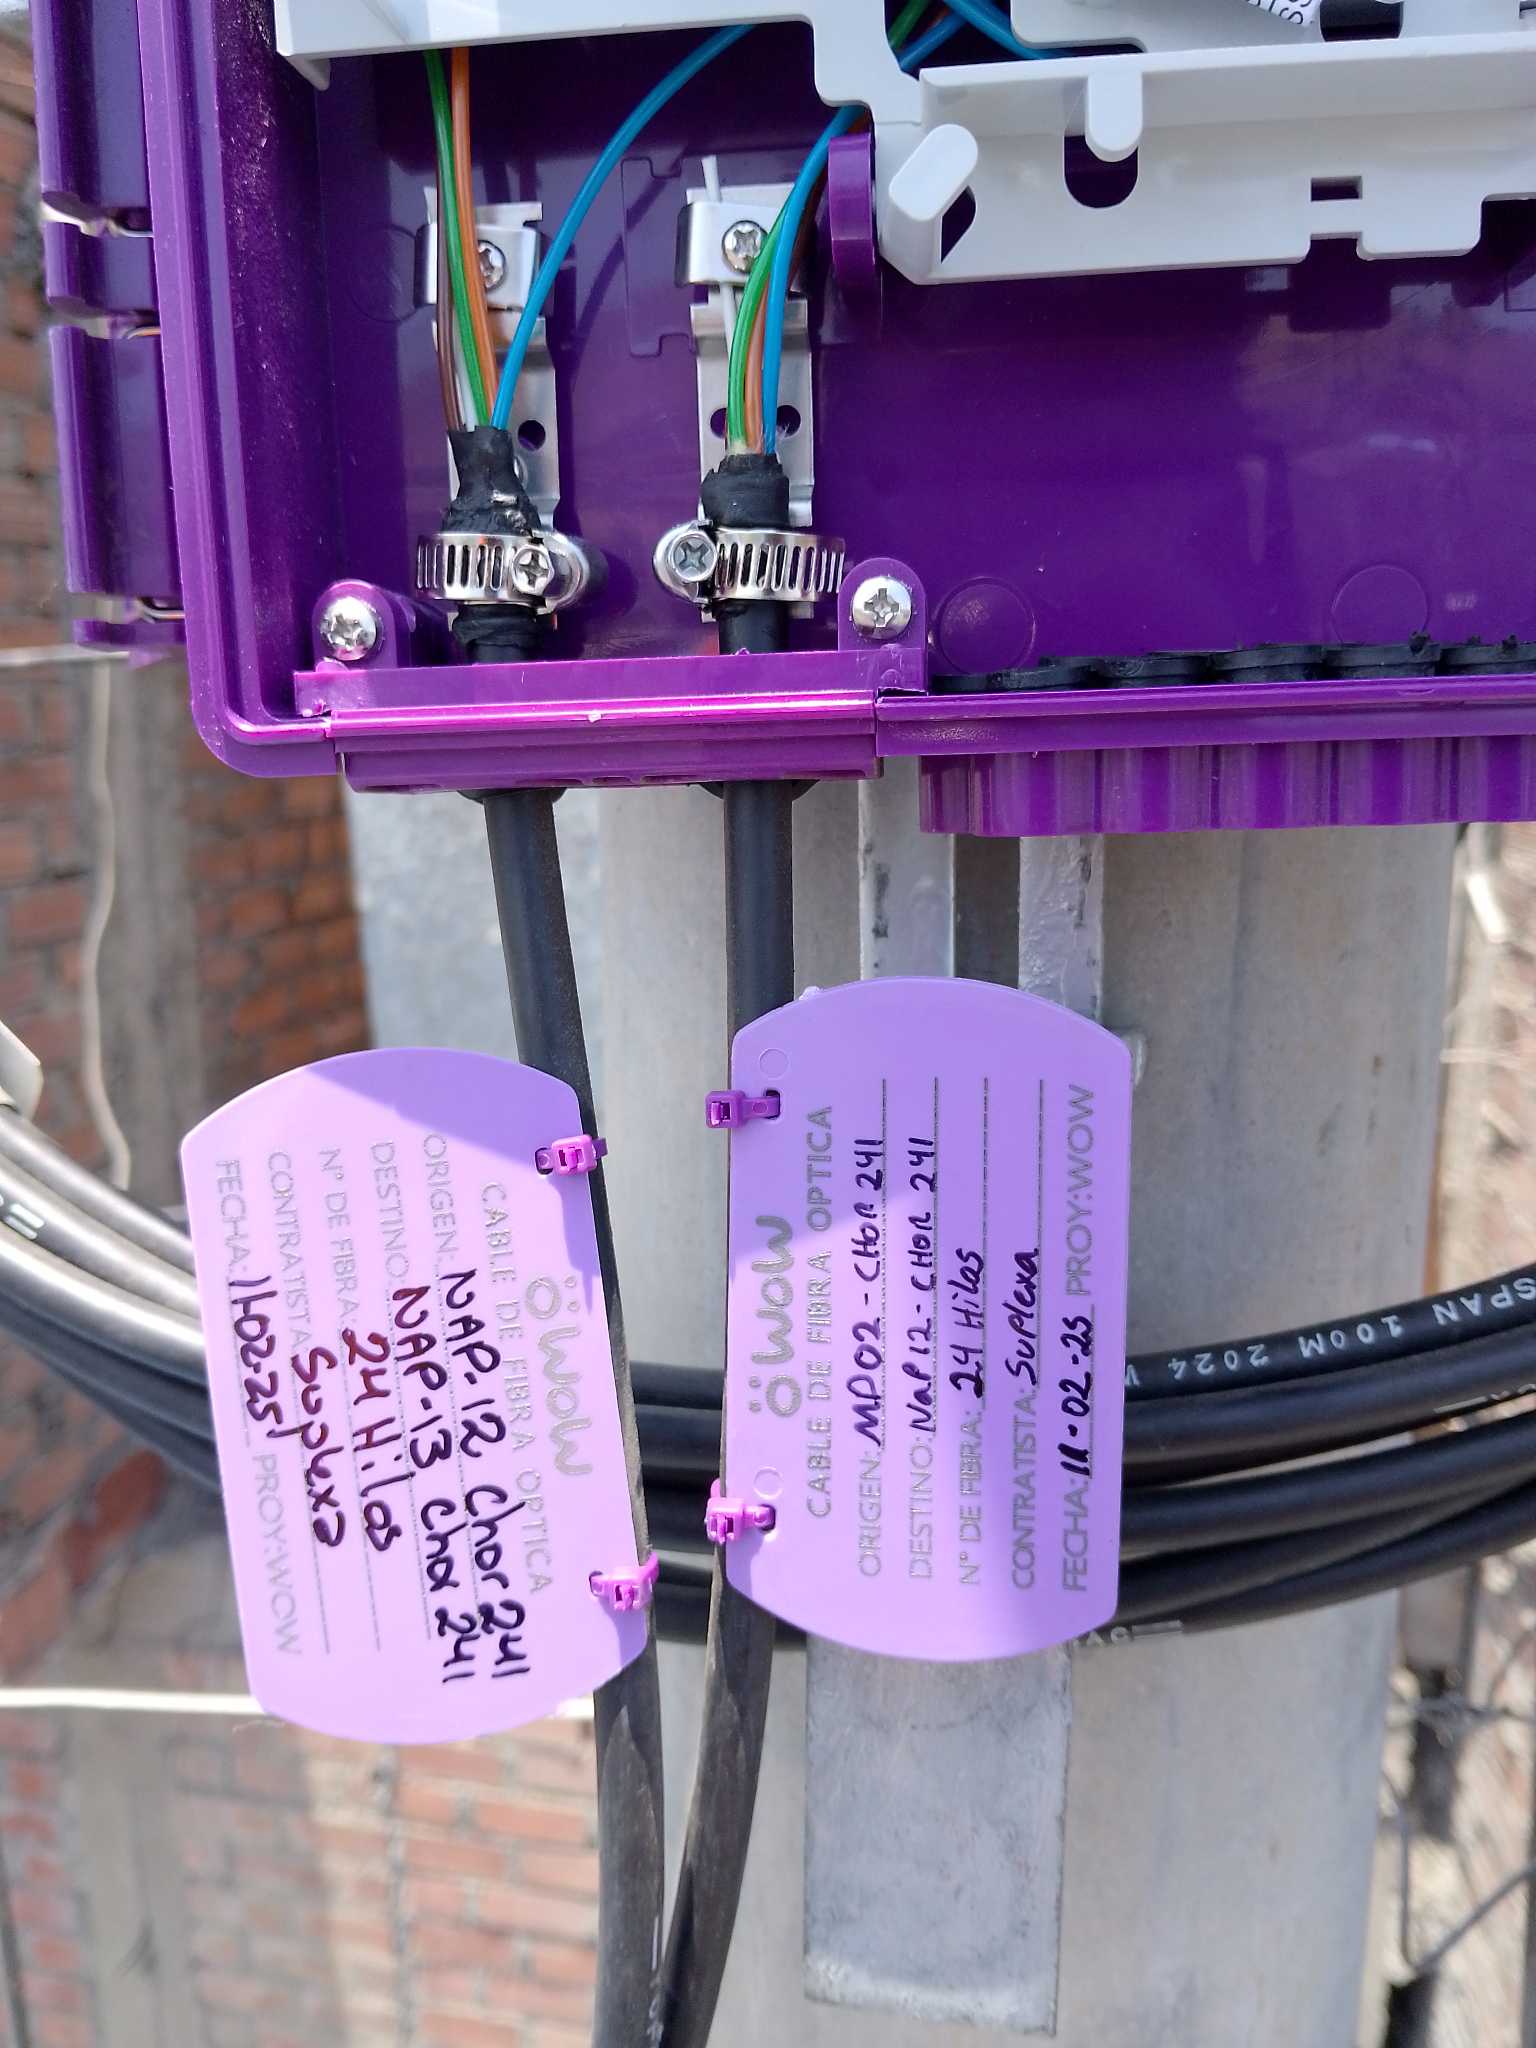 wow
CABLE DE FIBRA OPTICA
ORIGEN: NAP-12 Chor 241
DESTINO: NAP-13 Chor 241
N° DE FIBRA: 24 Hilos
CONTRATISTA: Suplexa
FECHA: 11-02-25 PROY:WOW
wow
CABLE DE FIBRA OPTICA
ORIGEN: MPO2-CHOR 241
DESTINO: NAP12-CHOR 241
N° DE FIBRA: 24 Hilos
CONTRATISTA: Suplexa
FECHA: 11-02-25 PROY:WOW
SPAN 100M 2024